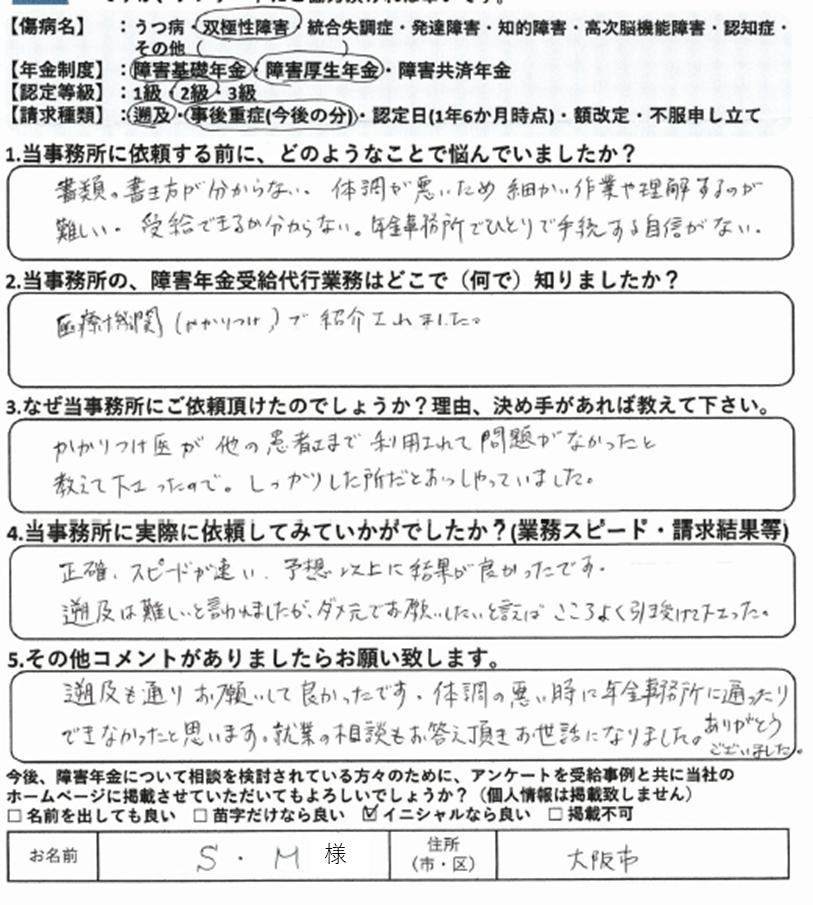 【傷病名】 ：うつ病・双極性障害・統合失調症・発達障害・知的障害・高次脳機能障害・認知症・
その他（　　　　　　　　）
【年金制度】：障害基礎年金・障害厚生年金・障害共済年金
【認定等級】：1級・2級・3級
【請求種類】：遡及・事後重症(今後の分)・認定日(1年6か月時点)・額改定・不服申し立て
1.当事務所に依頼する前に、どのようなことで悩んでいましたか？
書類の書き方が分からない。体調が悪いため細かい作業や理解するのが
難しい。受給できるか分からない。年金事務所でひとりで手続する自信がない。
2.当事務所の、障害年金受給代行業務はどこで（何で）知りましたか？
医療機関(かかりつけ)で紹介されました。
3.なぜ当事務所にご依頼頂けたのでしょうか？理由、決め手があれば教えて下さい。
かかりつけ医が他の患者さまで利用されて問題がなかったと
教えて下さったので。しっかりした所だとおっしゃっていました。
4.当事務所に実際に依頼してみていかがでしたか？(業務スピード・請求結果等)
正確、スピードが速い、予想以上に結果が良かったです。
遡及は難しいと言われましたが、ダメ元でお願いしたいと言えばこころよく引き受けて下さった。
5.その他コメントがありましたらお願い致します。
遡及も通りお願いして良かったです。体調の悪い時に年金事務所に通ったり
できなかったと思います。就業の相談もお答え頂きお世話になりました。ありがとう
ございました。
今後、障害年金について相談を検討されている方々のために、アンケートを受給事例と共に当社の
ホームページに掲載させていただいてもよろしいでしょうか？（個人情報は掲載致しません）
□ 名前を出しても良い　□ 苗字だけなら良い　☑ イニシャルなら良い　□ 掲載不可
お名前　S・M 様　住所（市・区）　大阪市